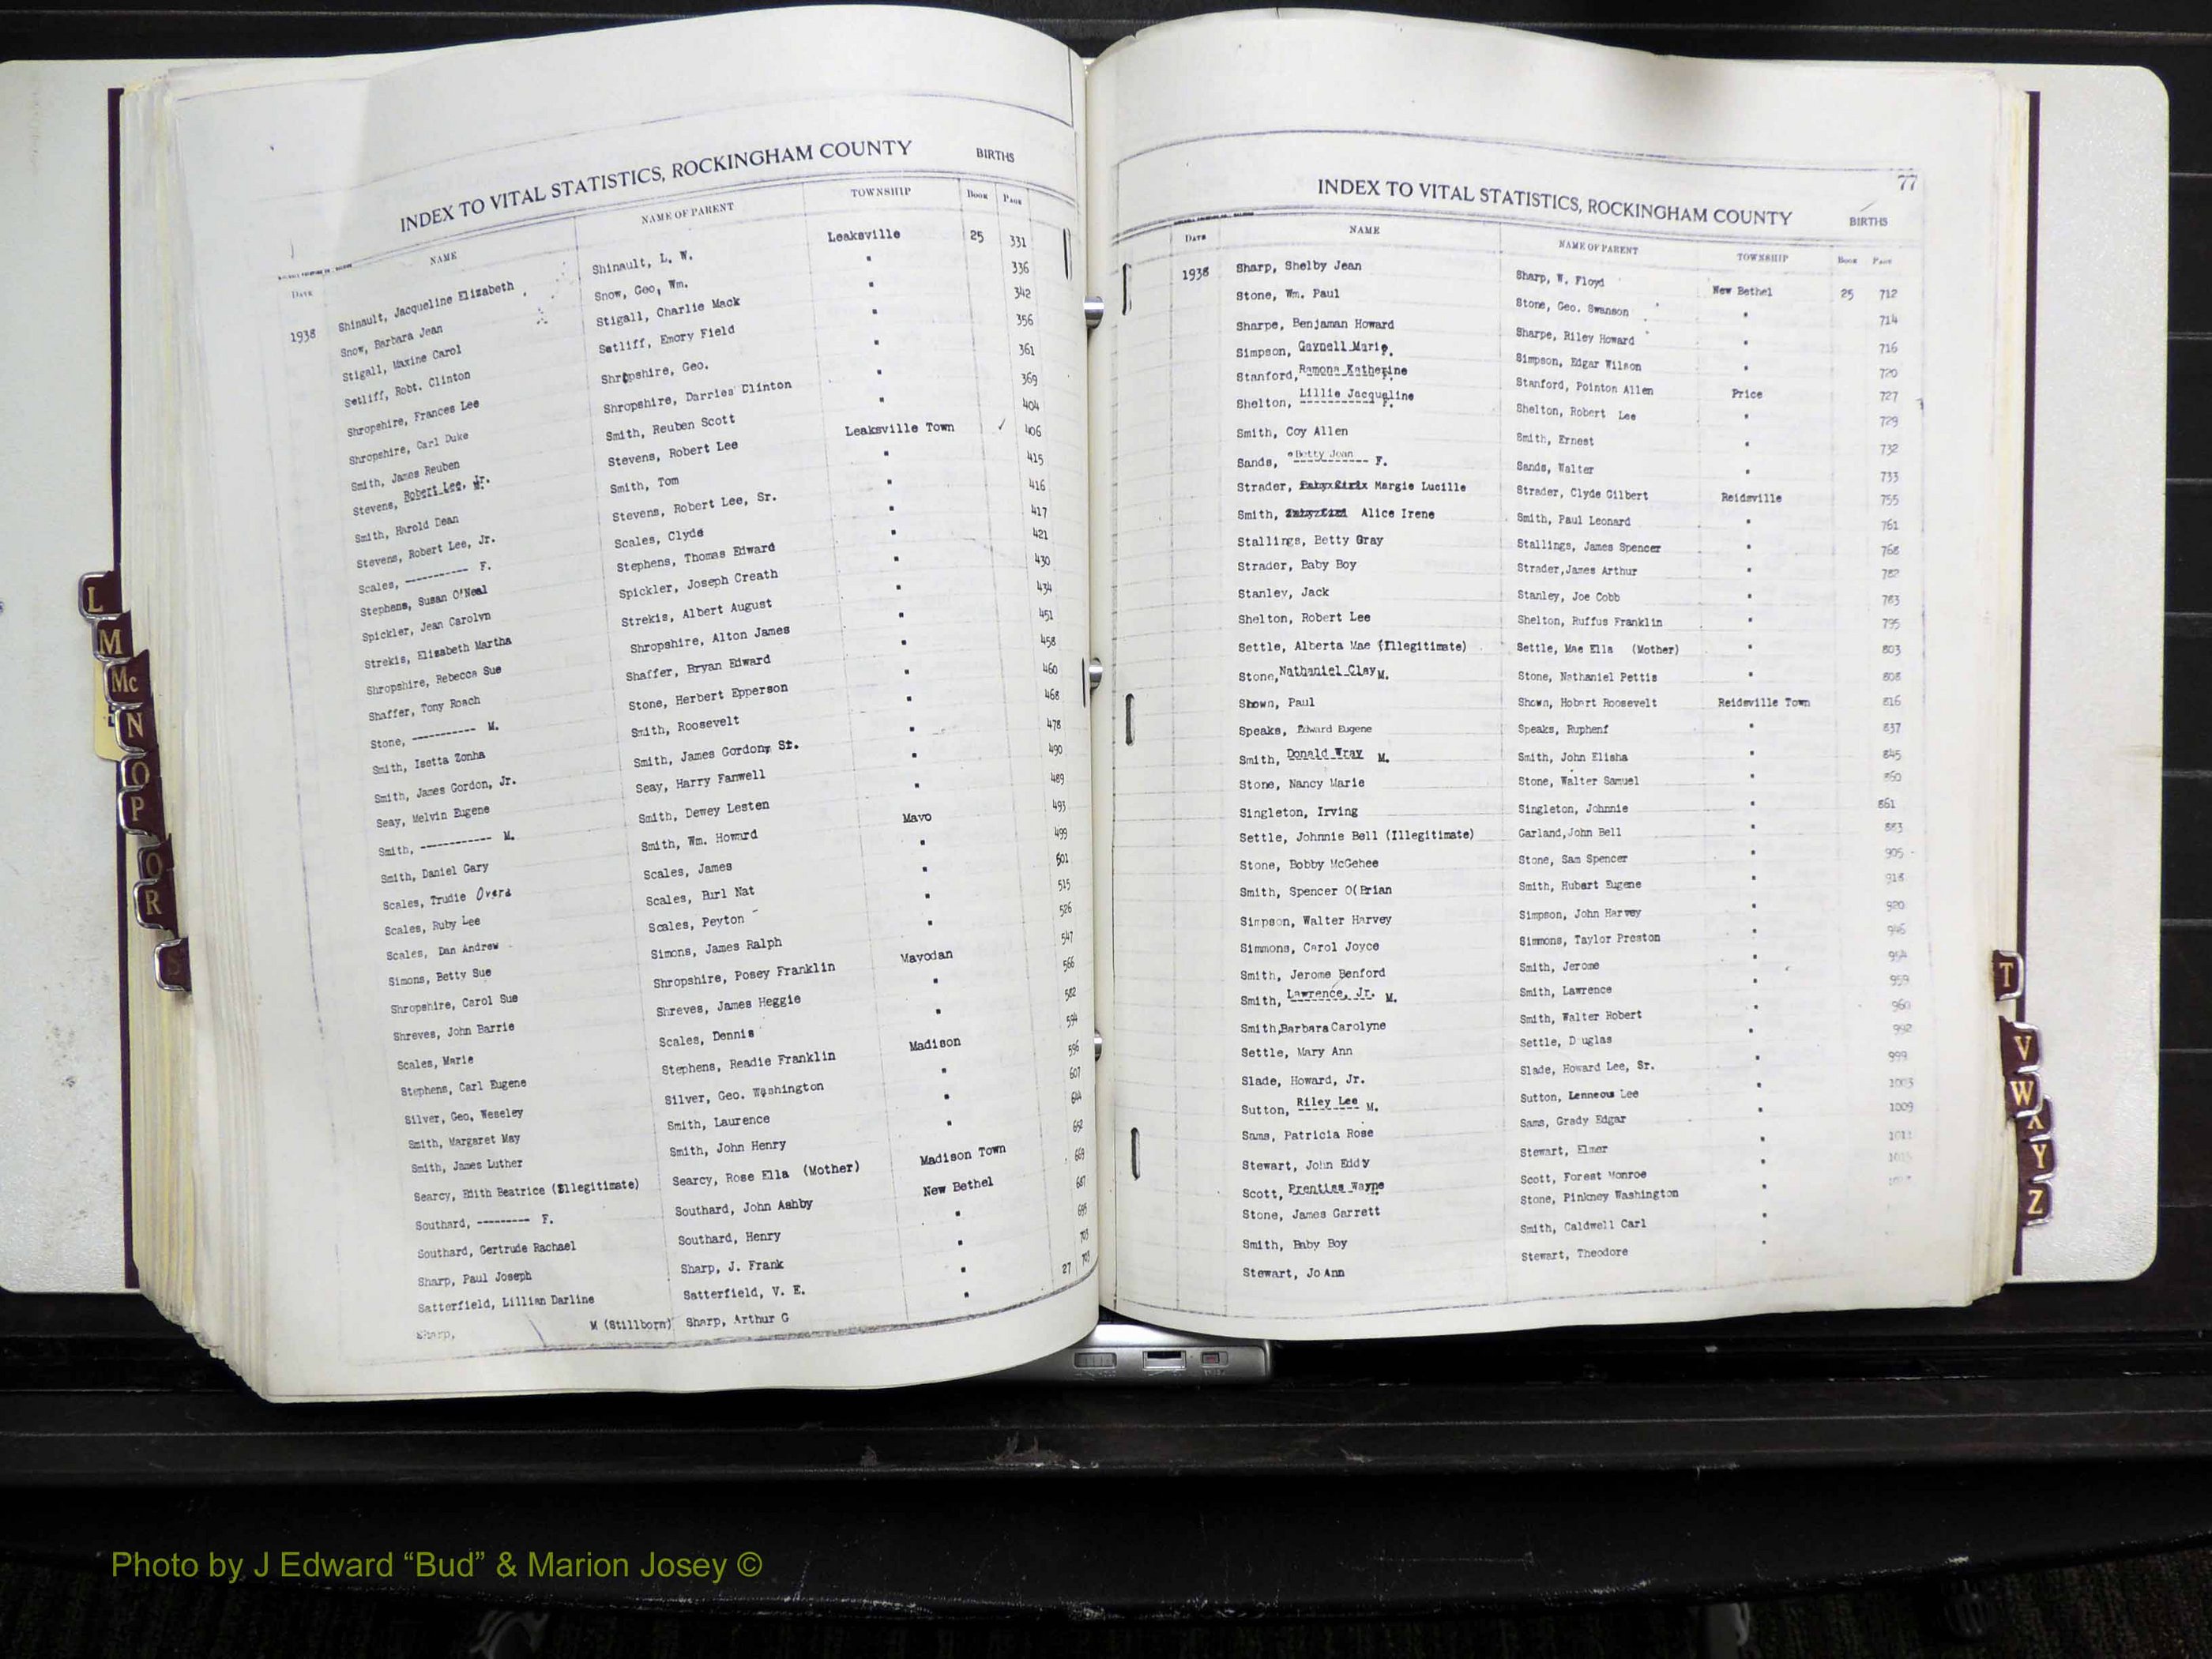 INDEX TO VITAL STATISTICS, ROCKINGHAM COUNTY BIRTHS
DATE NAME NAME OF PARENT TOWNSHIP BOOK PAGE
1938 Shinault, Jacqueline Elizabeth Shinault, L. W. Leaksville 25 331
Snow, Barbara Jean Snow, Geo, Wm. " 336
Stigall, Maxine Carol Stigall, Charlie Mack " 342
Setliff, Robt. Clinton Setliff, Emory Field " 356
Shropshire, Frances Lee Shropshire, Geo. " 361
Shropshire, Carl Duke Shropshire, Darries Clinton " 369
Smith, James Reuben Smith, Reuben Scott " 404
Stevens, Robert Lee, Jr. M. Stevens, Robert Lee Leaksville Town ✓ 406
Smith, Harold Dean Smith, Tom " 415
Stevens, Robert Lee, Jr. Stevens, Robert Lee, Sr. " 416
Scales, ----------- F. Scales, Clyde " 417
Stephens, Susan O'Neal Stephens, Thomas Edward " 421
Spickler, Jean Carolyn Spickler, Joseph Creath " 430
Strekis, Elizabeth Martha Strekis, Albert August " 434
Shropshire, Rebecca Sue Shropshire, Alton James " 451
Shaffer, Tony Roach Shaffer, Bryan Edward " 458
Stone, ----------- M. Stone, Herbert Epperson " 460
Smith, Isetta Zonha Smith, Roosevelt " 468
Smith, James Gordon, Jr. Smith, James Gordon, Sr. " 478
Seay, Melvin Eugene Seay, Harry Fanwell " 490
Smith, ------------ M. Smith, Dewey Lesten " 489
Smith, Daniel Gary Smith, Wm. Howard Mayo 493
Scales, Trudie Overa Scales, James " 499
Scales, Ruby Lee Scales, Burl Nat " 501
Scales, Dan Andrew Scales, Peyton " 515
Simons, Betty Sue Simons, James Ralph " 526
Shropshire, Carol Sue Shropshire, Posey Franklin Mayodan 547
Shreves, John Barrie Shreves, James Heggie " 566
Scales, Marie Scales, Dennis " 582
Stephens, Carl Eugene Stephens, Readie Franklin Madison 594
Silver, Geo, Weseley Silver, Geo. Washington " 596
Smith, Margaret May Smith, Laurence " 607
Smith, James Luther Smith, John Henry " 644
Searcy, Edith Beatrice (Illegitimate) Searcy, Rose Ella (Mother) Madison Town 652
Southard, --------- F. Southard, John Ashby New Bethel 669
Southard, Gertrude Rachael Southard, Henry " 687
Sharp, Paul Joseph Sharp, J. Frank " 695
Satterfield, Lillian Darline Satterfield, V. E. " 703
Sharp, M (Stillborn) Sharp, Arthur G " 27 703
77
INDEX TO VITAL STATISTICS, ROCKINGHAM COUNTY BIRTHS
DATE NAME NAME OF PARENT TOWNSHIP BOOK PAGE
1938 Sharp, Shelby Jean Sharp, W. Floyd New Bethel 25 712
Stone, Wm. Paul Stone, Geo. Swanson " 714
Sharpe, Benjaman Howard Sharpe, Riley Howard " 716
Simpson, Gaynell Marie F. Simpson, Edgar Wilson 720
Stanford, Ramona Katherine F. Stanford, Pointon Allen Price 727
Shelton, Lillie Jacqueline F. Shelton, Robert Lee " 729
Smith, Coy Allen Smith, Ernest " 732
Sands, Betty Jean F. Sands, Walter " 733
Strader, Margie Lucille Strader, Clyde Gilbert Reidsville 755
Smith, Alice Irene Smith, Paul Leonard " 761
Stallings, Betty Gray Stallings, James Spencer " 768
Strader, Baby Boy Strader,James Arthur " 782
Stanley, Jack Stanley, Joe Cobb " 783
Shelton, Robert Lee Shelton, Ruffus Franklin " 795
Settle, Alberta Mae (Illegitimate) Settle, Mae Ella (Mother) " 803
Stone, Nathaniel Clay M. Stone, Nathaniel Pettis " 808
Shown, Paul Shown, Hobert Roosevelt Reidsville Town 816
Speaks, Edward Eugene Speaks, Ruphenf " 837
Smith, Donald Wray M. Smith, John Elisha " 845
Stone, Nancy Marie Stone, Walter Samuel " 860
Singleton, Irving Singleton, Johnnie " 861
Settle, Johnnie Bell (Illegitimate) Garland,John Bell " 883
Stone, Bobby McGehee Stone, Sam Spencer " 905
Smith, Spencer O(Brian Smith, Hubert Eugene " 918
Simpson, Walter Harvey Simpson, John Harvey " 920
Simmons, Carol Joyce Simmons, Taylor Preston " 946
Smith, Jerome Benford Smith, Jerome " 954
Smith, Lawrence, Jr. M. Smith, Lawrence " 959
Smith,Barbara Carolyne Smith, Walter Robert " 960
Settle, Mary Ann Settle, D uglas " 992
Slade, Howard, Jr. Slade, Howard Lee, Sr. " 999
Sutton, Riley Lee M. Sutton, Lenneous Lee " 1003
Sams, Patricia Rose Sams, Grady Edgar " 1009
Stewart, John Eddy Stewart, Elmer "
Scott, Prentiss Wayne Scott, Forest Monroe "
Stone, James Garrett Stone, Pinkney Washington "
Smith, Baby Boy Smith, Caldwell Carl "
Stewart, Jo Ann Stewart, Theodore "
L
M
Mc
N
O
P
Q
R
S
T
V
W
X
Y
Z
Photo by J Edward “Bud” & Marion Josey ©